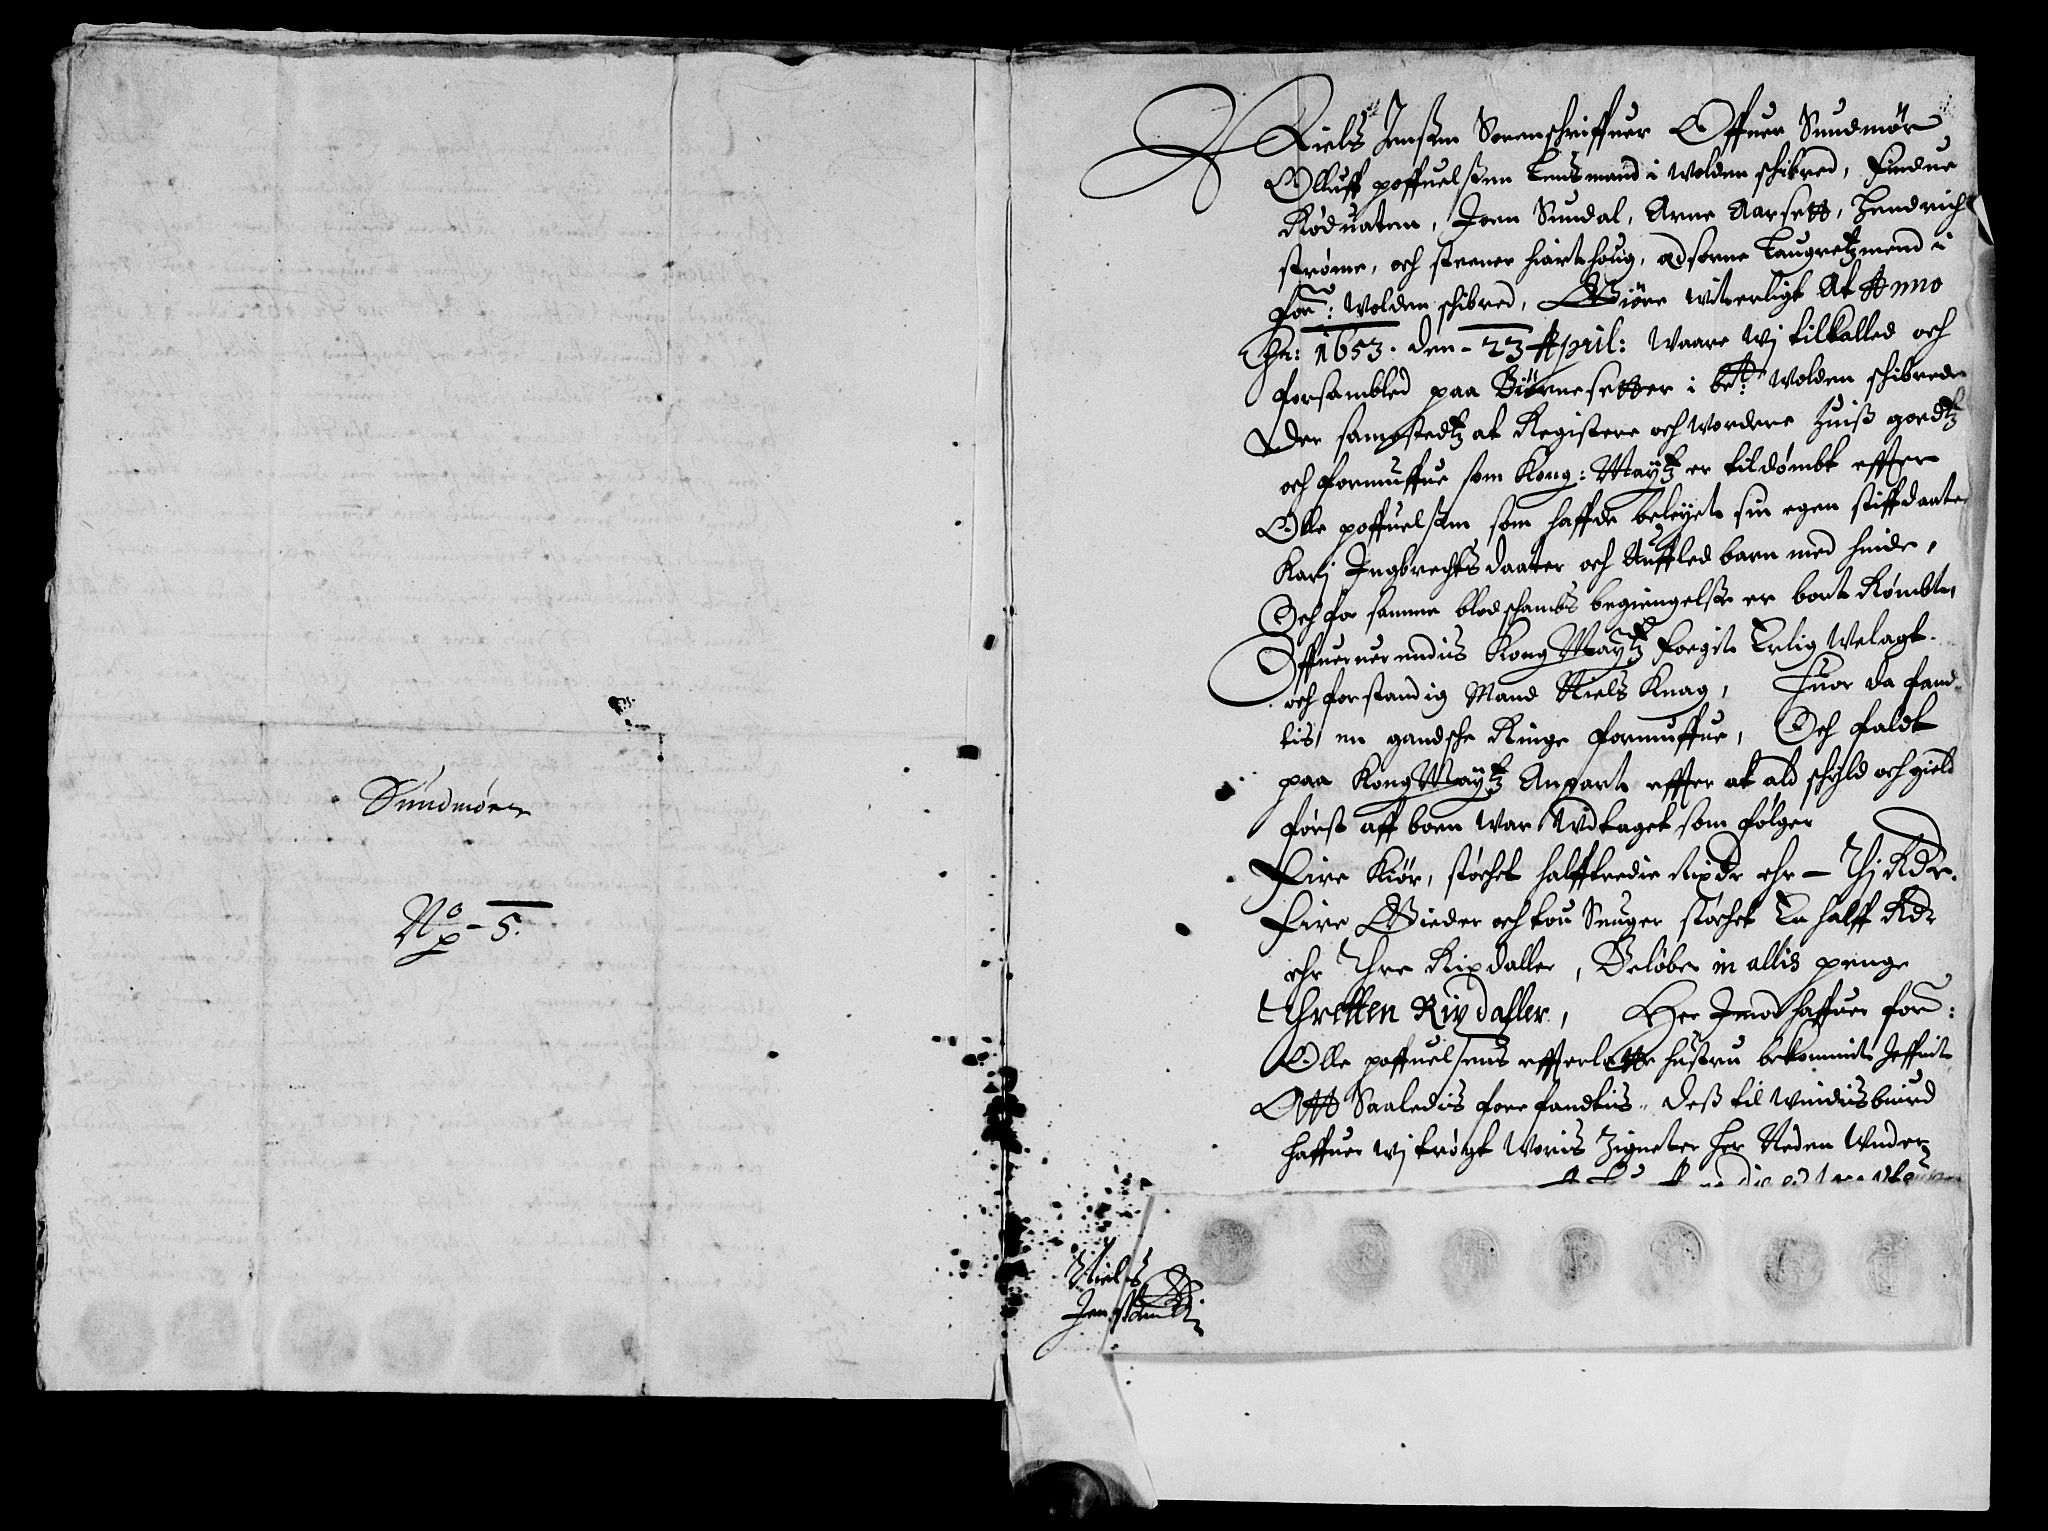 Sundmøer
No p – 5.
Niels Jenssen Sorenschriffuer Offuer Sundmør
Olluff poffuelssen Lensmand i Wolden schibred, Findue
Rødvaten, Joen Sundal, Arne Aarsett, Hendrich
strøme, och steener hiarthoug, Edsorne Laugretzmend i
for: Wolden schibred, Giøre witterligt At Anno
Chr: 1653. den – 23 April: Waare wj tilkalled och
forsambled paa Biørnesetter i bete: Wolden schibrede
Der samestedtz at Registere och Wordere Huiss goedtz
och formuffue som Kong: Maÿtz er tildømbt effter
Olle poffuelssen som haffde beleÿet sin egen stiffdaater
Karj Ingbrechtsdaater och Aufled barn med hinde,
Och for samme blodschambs begiengelsse er bort Rømbt,
Offueruerendis Kong Maytz foegit Erlig Welagt
och forstandig Mand Niels Knag, Huor da fand-
tis en gandsche Ringe formuffue, Och faldt
paa Kong Maÿtz Anpart effter at ald schyld och gield
først aff boen War Wdtaget som følger
Fire Kiør, støchet halfftredie Rixdr ehr – Thj Rdr.
Fire Gieder och tou Snuger støchet En halff Rdr
ehr Thre Rixdaller, Beløber in allis penge
Thretten Rixdahler, Her Imod haffuer for:
Olle poffuelsens effterlatte hustru bekommit Jeffnit
Att Saaledis fore fandtis, Dess til Windisbiurd
haffuer wj trøgt Woris Zigneter her Neden Under
Niels
Jenssen